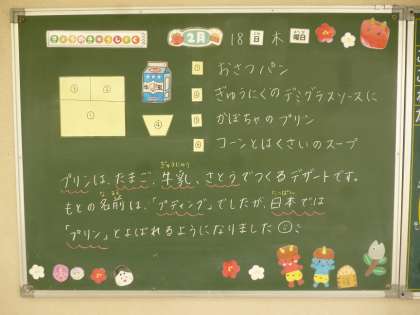 きょうのきゅうしょく
2月 18日 木曜日
① おさつパン
② ぎゅうにくのデミグラスソースに
③ かぼちゃのプリン
④ コーンとはくさいのスープ
③ ②
①
④
プリンは、たまご、牛乳、さとうでつくるデザートです。
ぎゅうにゅう
もとの名前は、「プディング」でしたが、日本では
なまえ にっぽん
「プリン」とよばれるようになりました